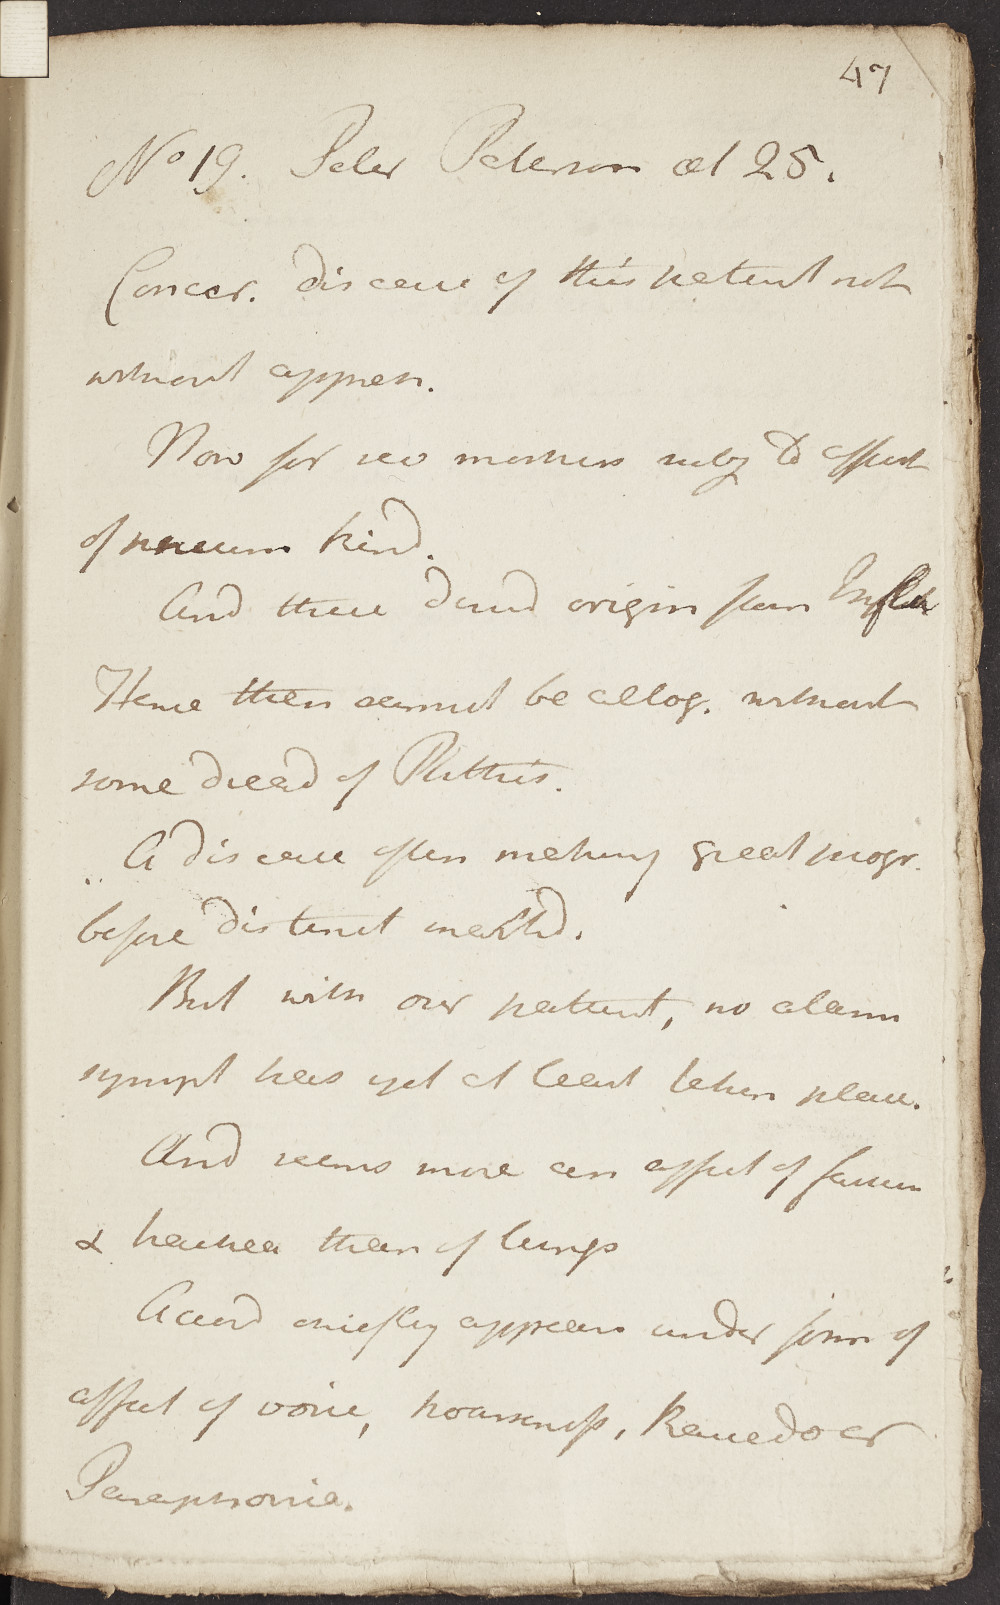 47
No 19. Peter Peterson æt 25.
Concer. disease of this patient not
without appreh.
Now for sev months subj to affect
of pneum kind.
And these daud origin from Inflam
Hence then cannot be allog. without
some dread of Phthis.
A disease often making great progr.
before distinct markd.
But with our patient, no alarm
sympt has yet at least taken place.
And seems more an affect of fauces
& trachea than of lungs
Accord chiefly appears under form of
affect of voice, hoarseness, Raucedo or
Paraphonia.